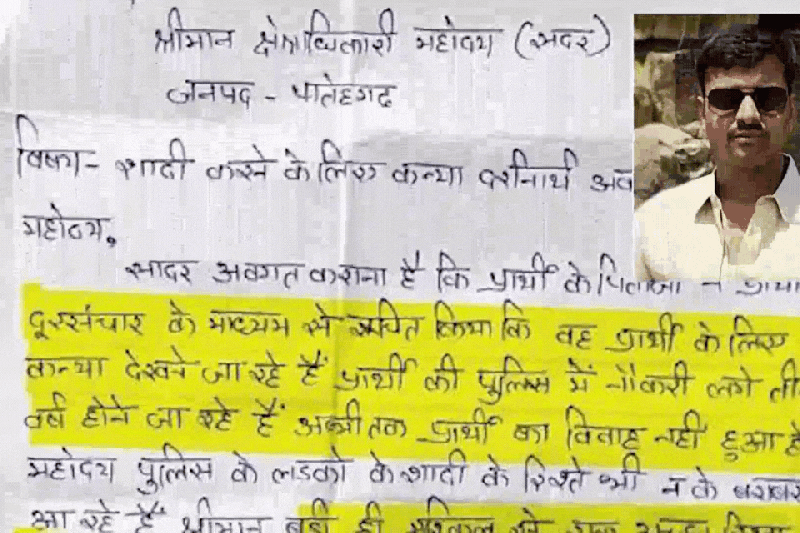 श्रीमान क्षेत्राधिकारी महोदय (सदर)
जनपद - फतेहगढ
विषय- शादी करने के लिए कन्या दर्शनार्थ अव
महोदय,
सादर अवगत कराना है कि प्रार्थी के पिताजी ने
दूरसंचार के माध्यम से सूचित किया कि वह प्रार्थी के लिए
कन्या देखने जा रहे हैं प्रार्थी की पुलिस में नौकरी लगे ती
वर्ष होने जा रहे हैं अभी तक प्रार्थी का विवाह नहीं हुआ है
महोदय पुलिस के लडको के शादी के रिश्ते भी न के बराबर
आ रहे हैं श्रीमान बडी ही मुश्किल से एक